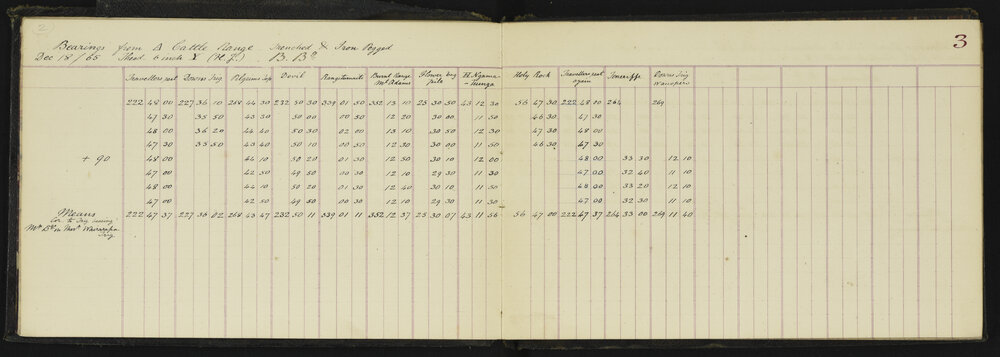 2
3
Bearings from Δ Cattle Range Trenched & Iron Pegged
Dec 18/65 Theod. 6 inch (H.J.) B. Bo
Travellers rest Downs Trig Pilgrims Top Devil Rangitumau Burnt Range Mt Adams Flower bay pile Te Ngama-tunga Holy Rock Travellers rest again Teneriffe Downs Trig
222 48 00 227 36 10 268 44 30 232 50 30 339 01 50 352 13 10 25 30 50 43 12 30 56 47 30 222 48 10 264 269
47 30 35 50 43 50 50 00 00 50 12 20 30 00 11 50 46 30 47 30
48 00 36 20 44 40 50 30 02 00 13 10 30 50 12 30 47 30 48 00
47 30 35 50 43 40 50 10 00 50 12 30 30 00 11 50 46 30 47 30
+ 90 48 00 44 10 50 20 01 30 12 50 30 10 12 00 48 00 33 30 12 10
47 00 42 50 49 50 00 30 12 10 29 30 11 30 47 00 32 40 11 10
48 00 44 10 50 20 01 30 12 40 30 10 11 50 48 00 33 20 12 10
47 00 42 50 49 50 00 30 12 10 29 30 11 30 47 00 32 30 11 10
Means 222 47 37 227 36 02 268 43 47 232 50 11 339 01 11 352 12 37 25 30 07 43 11 56 56 47 00 222 47 37 264 33 00 269 11 40
Cor. to Trig
Trig